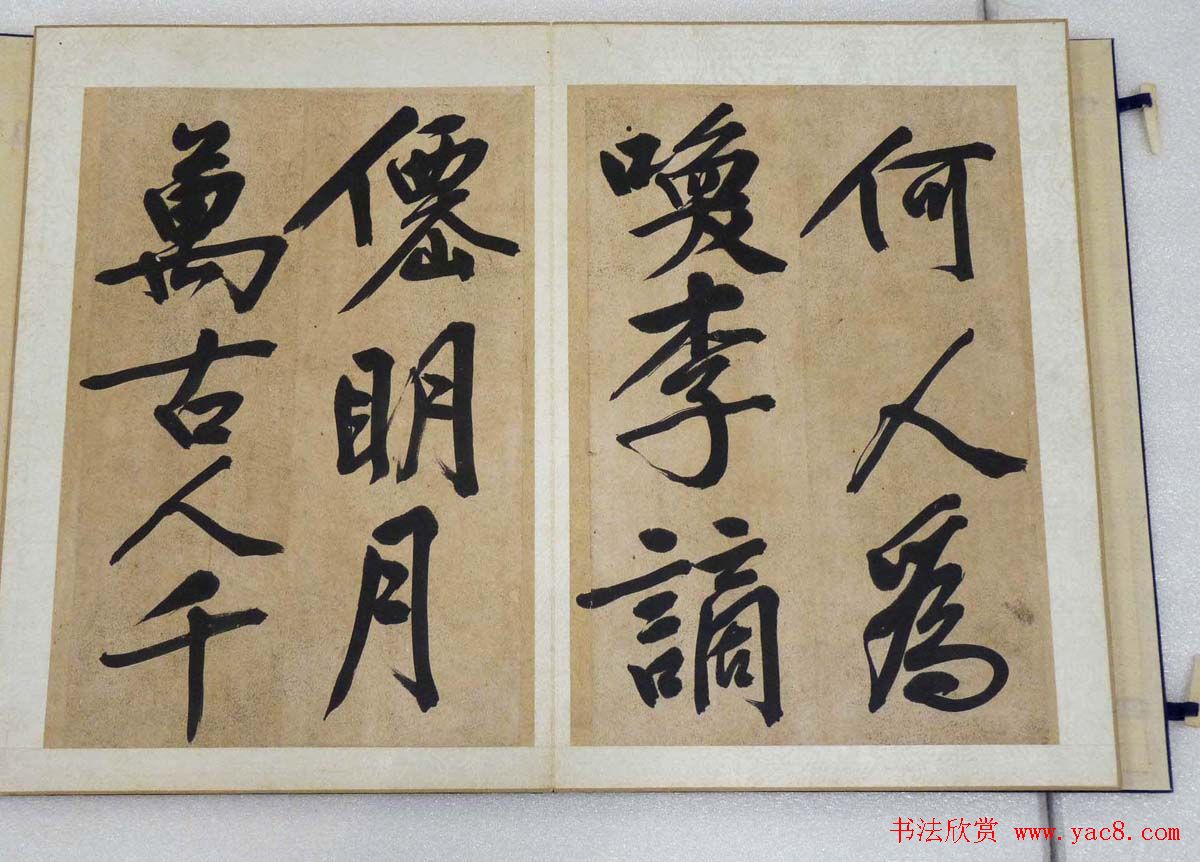 何人為
喚李謫
僊明月
萬古人千
书法欣赏 www.yac8.com